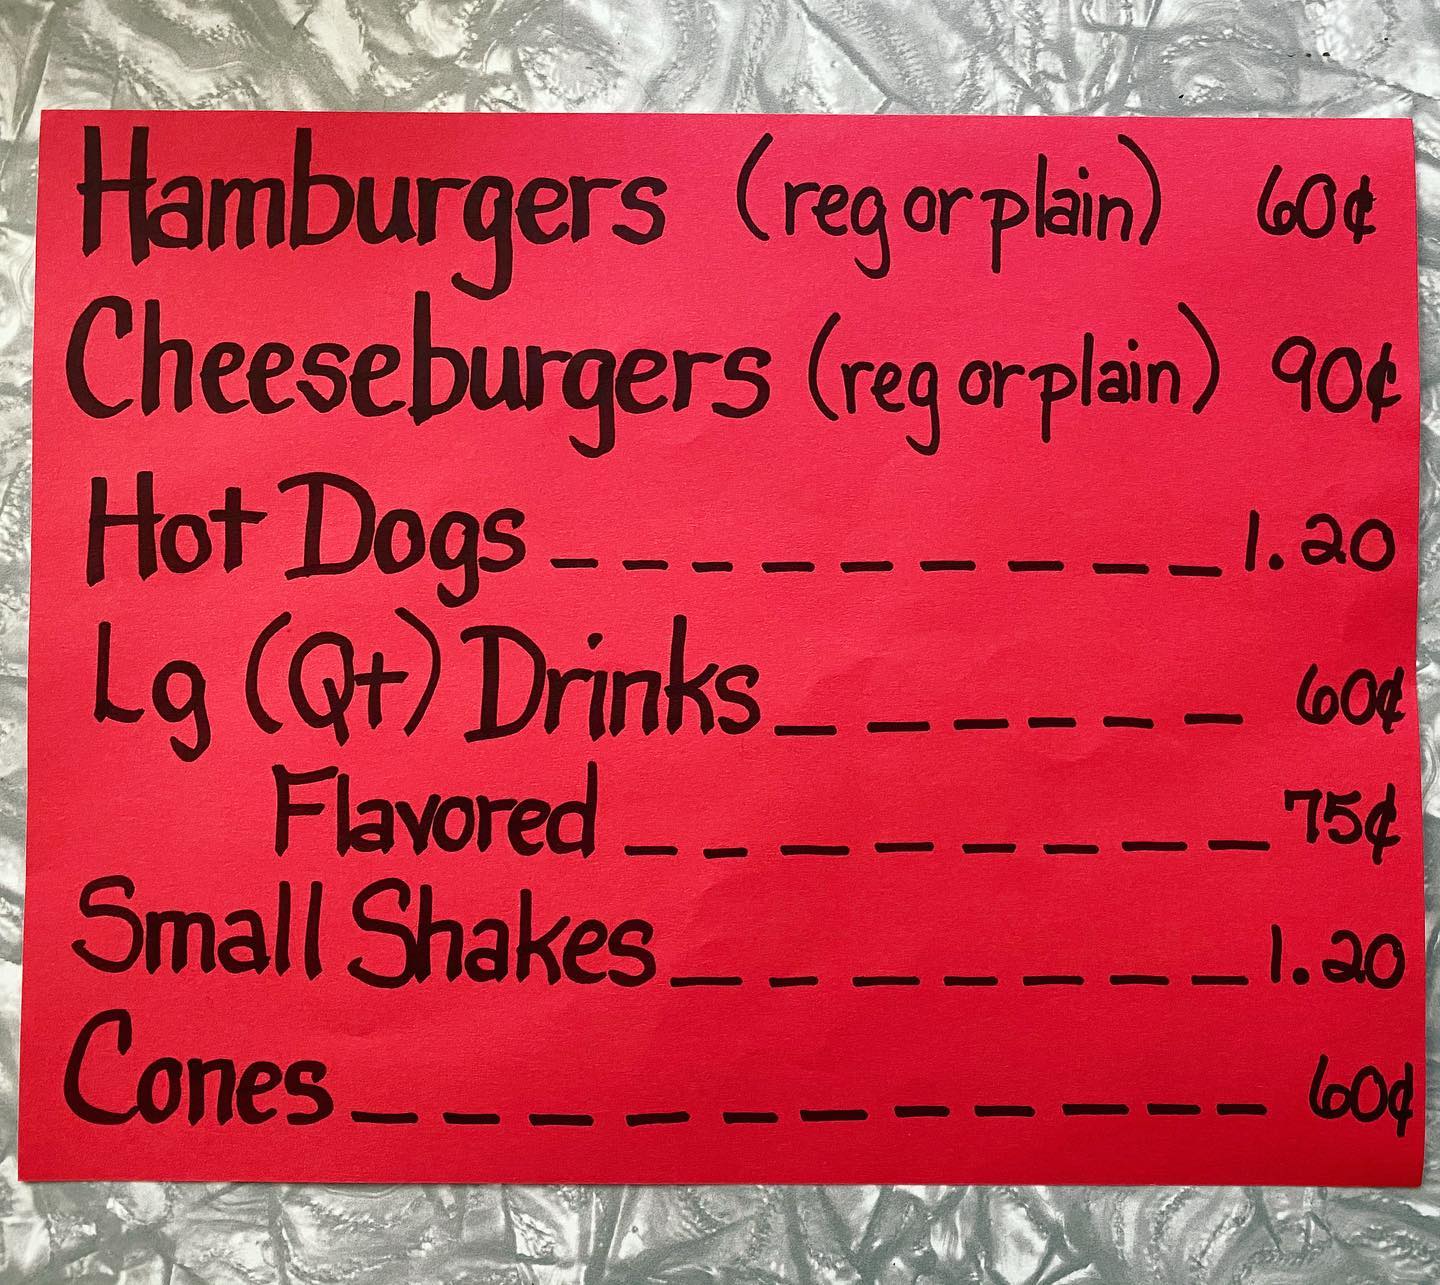 Hamburgers (reg or plain) 60¢
Cheeseburgers (reg or plain) 90¢
Hot Dogs _ _ _ _ _ _ _ _ _ 1.20
Lg (Qt) Drinks _ _ _ _ _ _ 60¢
Flavored _ _ _ _ _ _ _ _ 75¢
Small Shakes _ _ _ _ _ _ _ 1.20
Cones _ _ _ _ _ _ _ _ _ _ _ 60¢